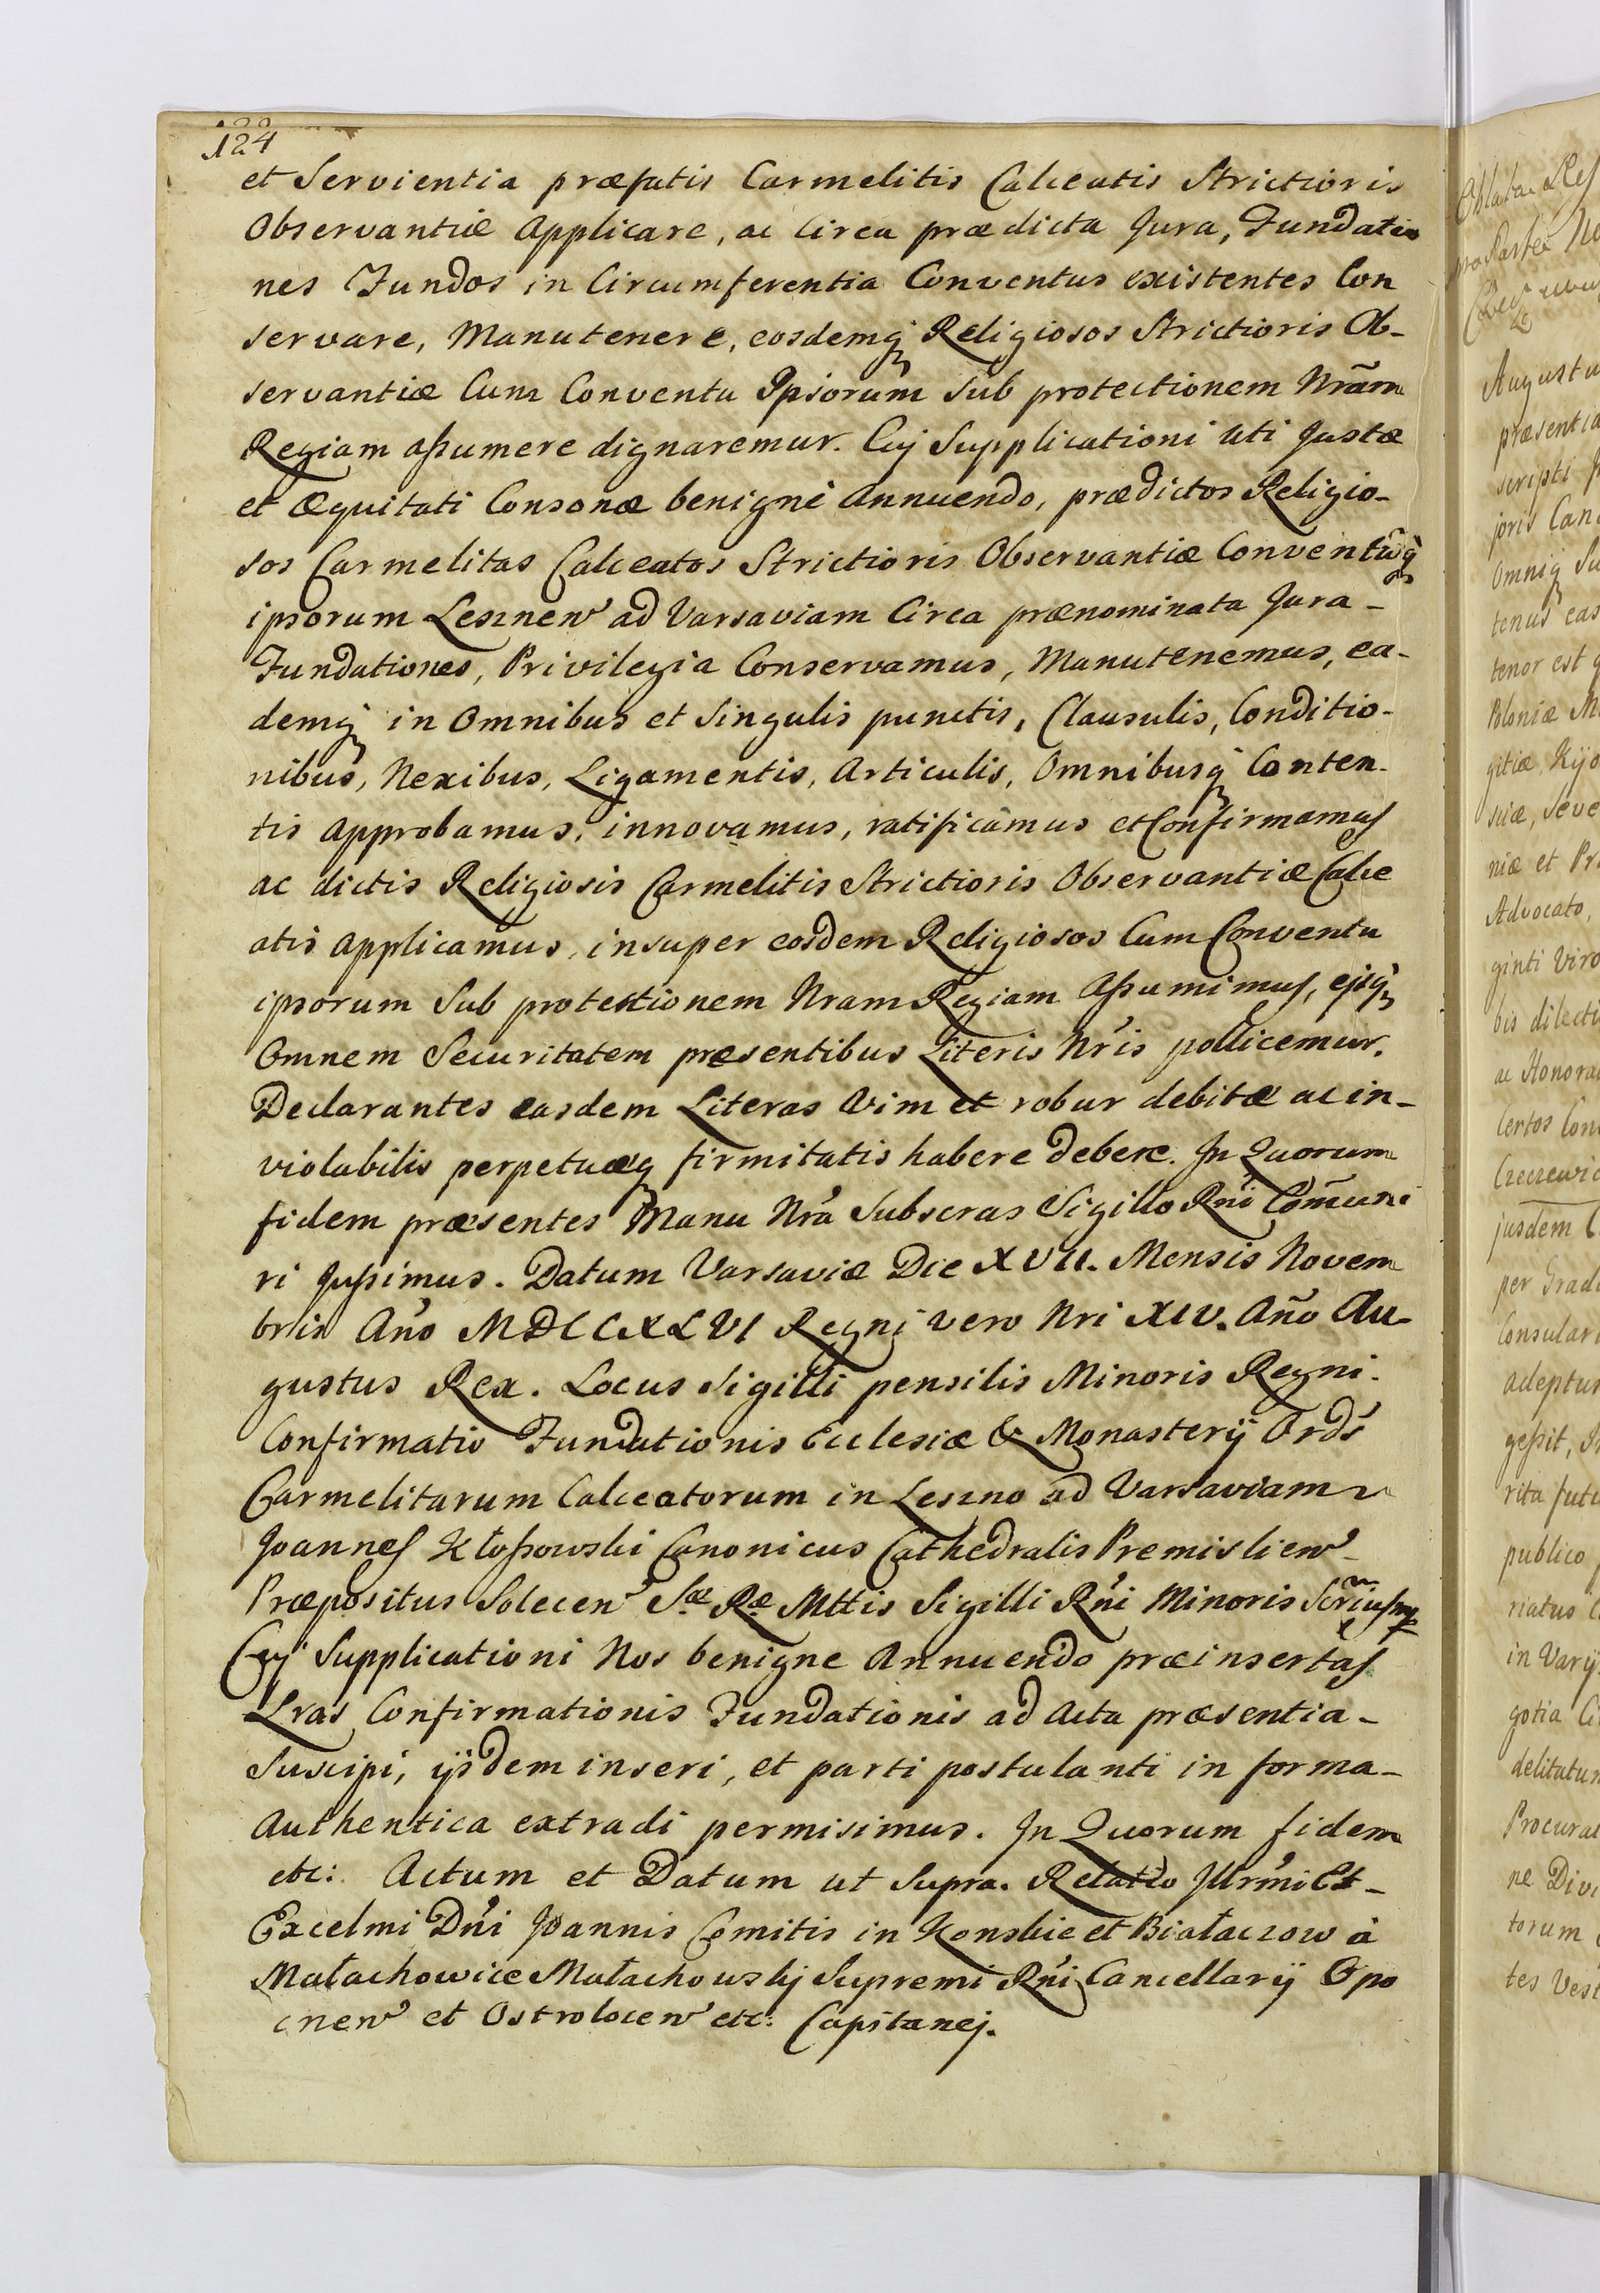 124
et Servientia præfatis Carmelitis Calceatis Strictioris
Observantiæ Applicare, ac Circa prædicta Jura, Fundatio
nes Fundos in Circumferentia Conventus existentes Con
servare, Manutenere, eosdemq̃ Religiosos Strictioris Ob-
servantiæ Cum Conventu Ipsorum sub protectionem Nrãm
Regiam assumere dignaremur. Cuj Supplicationi uti Justæ
et Æquitati Consonæ benigne Annuendo, prædictos Religio-
sos Carmelitas Calceatos Strictioris Observantiæ Conventũq̃
ipsorum Lesznen ad Varsaviam Circa prænominata Jura-
Fundationes, Privilegia Conservamus, Manutenemus, ea-
demq̃ in Omnibus et Singulis punctis, Clausulis, Conditio-
nibus, Nexibus, Ligamentis, Articulis, Omnibusq̃ Conten-
tis Approbamus, innovamus, ratificamus et Confirmamus
ac dictis Religiosis Carmelitis Strictioris Observantiæ Calce
atis Applicamus, insuper eosdem Religiosos Cum Conventu
ipsorum Sub protectionem Nram Regiam Assumimus, ejsq̃
Omnem Securitatem præsentibus Literis Nris pollicemur.
Declarantes easdem Literas Vim et robur debitæ ac in-
violabilis perpetuæq̃ firmitatis habere debere. In Quorum
fidem præsentes Manu Nrã Subscras Sigillo Rni Cõmuni
ri Jussimus. Datum Varsaviæ Die XVII. Mensis Novem
bris Año MDCCXLVI Regni vero Nri XIV. Año Au-
gustus Rex. Locus Sigilli pensilis Minoris Regni.
Confirmatio Fundationis Ecclesiæ & Monasterij Ordis
Carmelitarum Calceatorum in Leszno ad Varsaviam
Joannes Kłossowski Canonicus Cathedralis Premislien
Præpositus Solecen Sæ Ræ Mttis Sigilli Rni Minoris
Cuj Supplicationi Nos benigne Annuendo præinsertas
Lras Confirmationis Fundationis ad Acta præsentia-
Suscipi, ijsdem inseri, et parti postulanti in forma-
Authentica extradi permisimus. In Quorum fidem
etc: Actum et Datum ut Supra. Relatio Illrmi Et-
Excelmi Dni Joannis Comitis in Konskie et Białaczow à
Małachowice Małachowskj Supremi Rni Cancellarij Opo
cnen et Ostrolocen etc: Capitanej.
Augustu
præsentia
scripti
joris Canc
Omniq̃ Su
tenus eas
tenor est q
Poloniæ M
gitiæ, Kijo
siæ, Seve
niæ et Pr
Advocato,
ginti Viro
bis dilecti
ac Honorat
Certos Con
Czeczewic
jusdem C
per Gradu
Consulari
adeptus
gessit,
rita futu
publico
riatus
in Varij
gotia Ci
delitatum
Procurat
ne Divi
torum
tes Vest